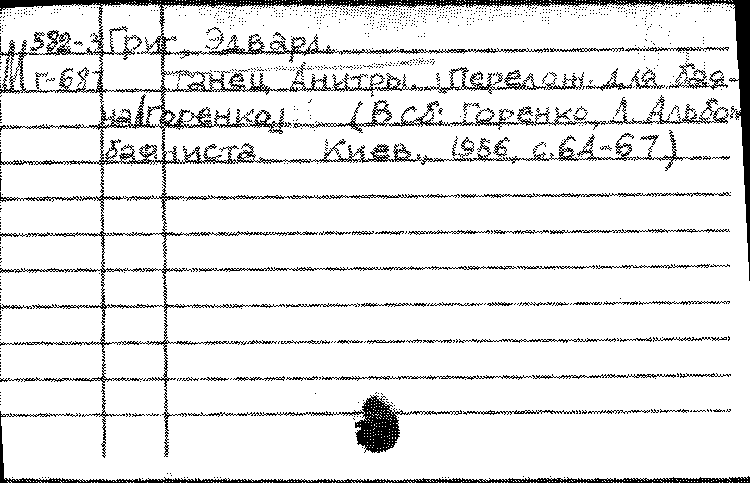 582-3 Григ, Эдвард.
М Г-687 Танец Анитры. [Перелож. для бая-
на Горенко] (В сб: Горенко, Л. Альбом
баяниста. Киев., 1956, с.64-67)